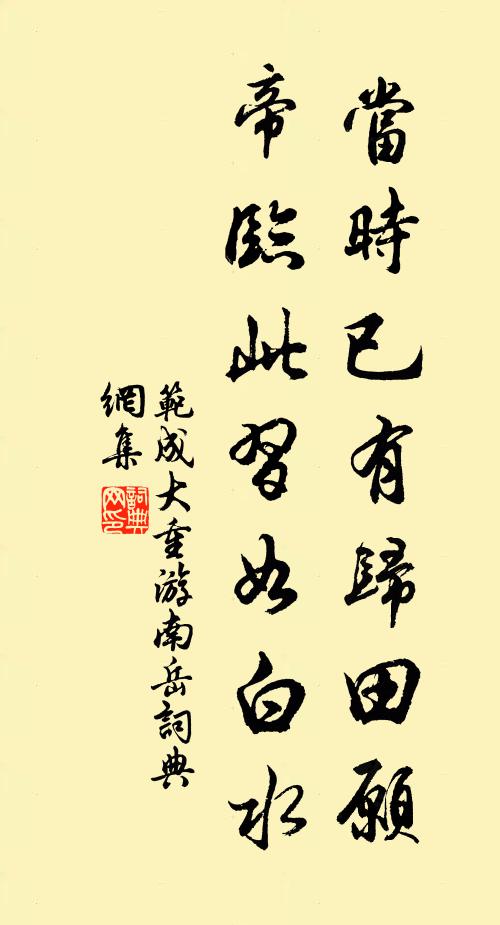 當時已有歸田願
帝臨此習如白水
範成大重游南岳詞典
網集
詞典
网印